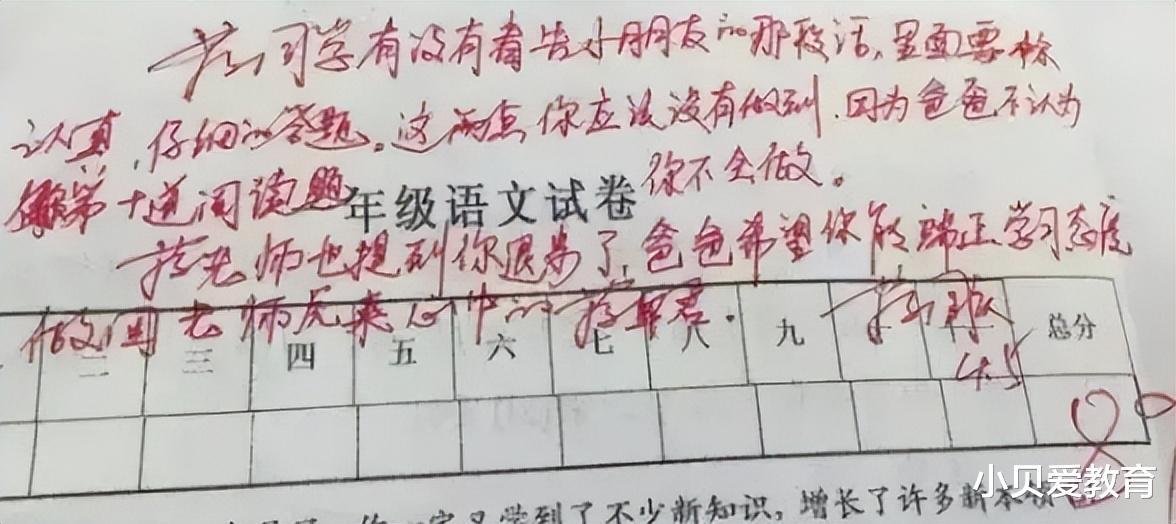 同学有没有看告小朋友的那段话,里面要你
认真,仔细的答题。这两点你应该没有做到.因为爸爸不认为
第十道阅读题 你不会做。
年级语文试卷
老师也提到你退步了,爸爸希望你能端正学习态度
做回老师 心中的
二 三 四 五 六 七 八 九 总分
4.5
学到了不少新知识,增长了许多新本领
小贝爱教育